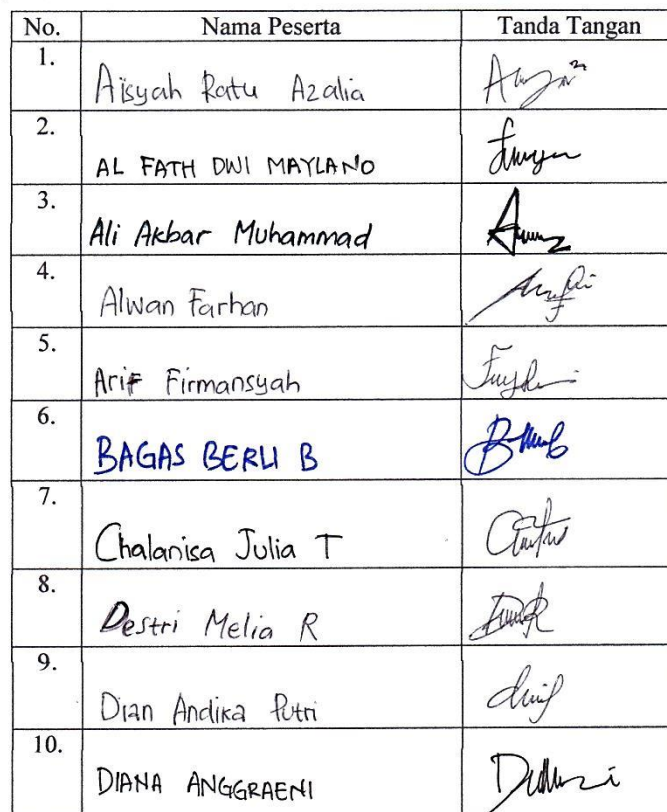 No. Nama Peserta Tanda Tangan
1. Aisyah Ratu Azalia
2. AL FATH DWI MAYLANO
3. Ali Akbar Muhammad
4. Alwan Farhan
5. Arif Firmansyah
6. BAGAS BERLI B
7. Chalanisa Julia T
8. Destri Melia R
9. Dian Andika Putri
10. DIANA ANGGRAENI